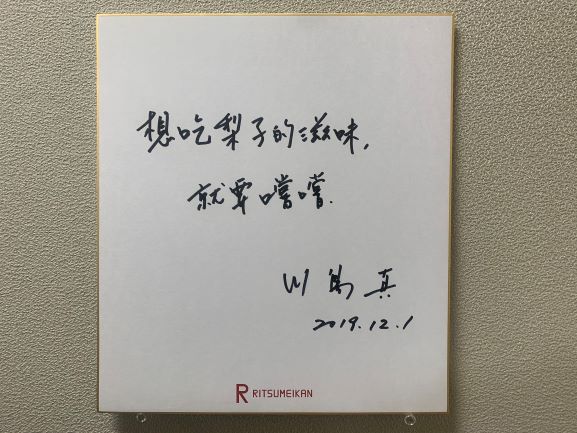 想吃梨子的滋味，
就要嚐嚐．
川島真
2019.12.1
R RITSUMEIKAN